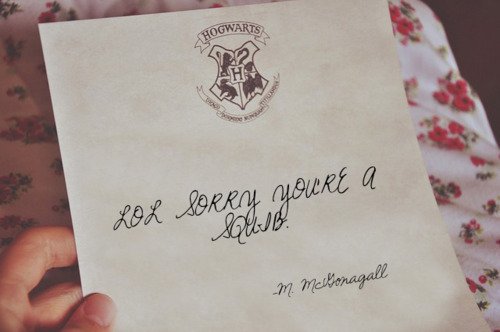 HOGWARTS
DRACO DORMIENS NUNQUAM TITILLANDUS
H
LOL SORRY YOU'RE A
SQUIB.
-M. McGonagall